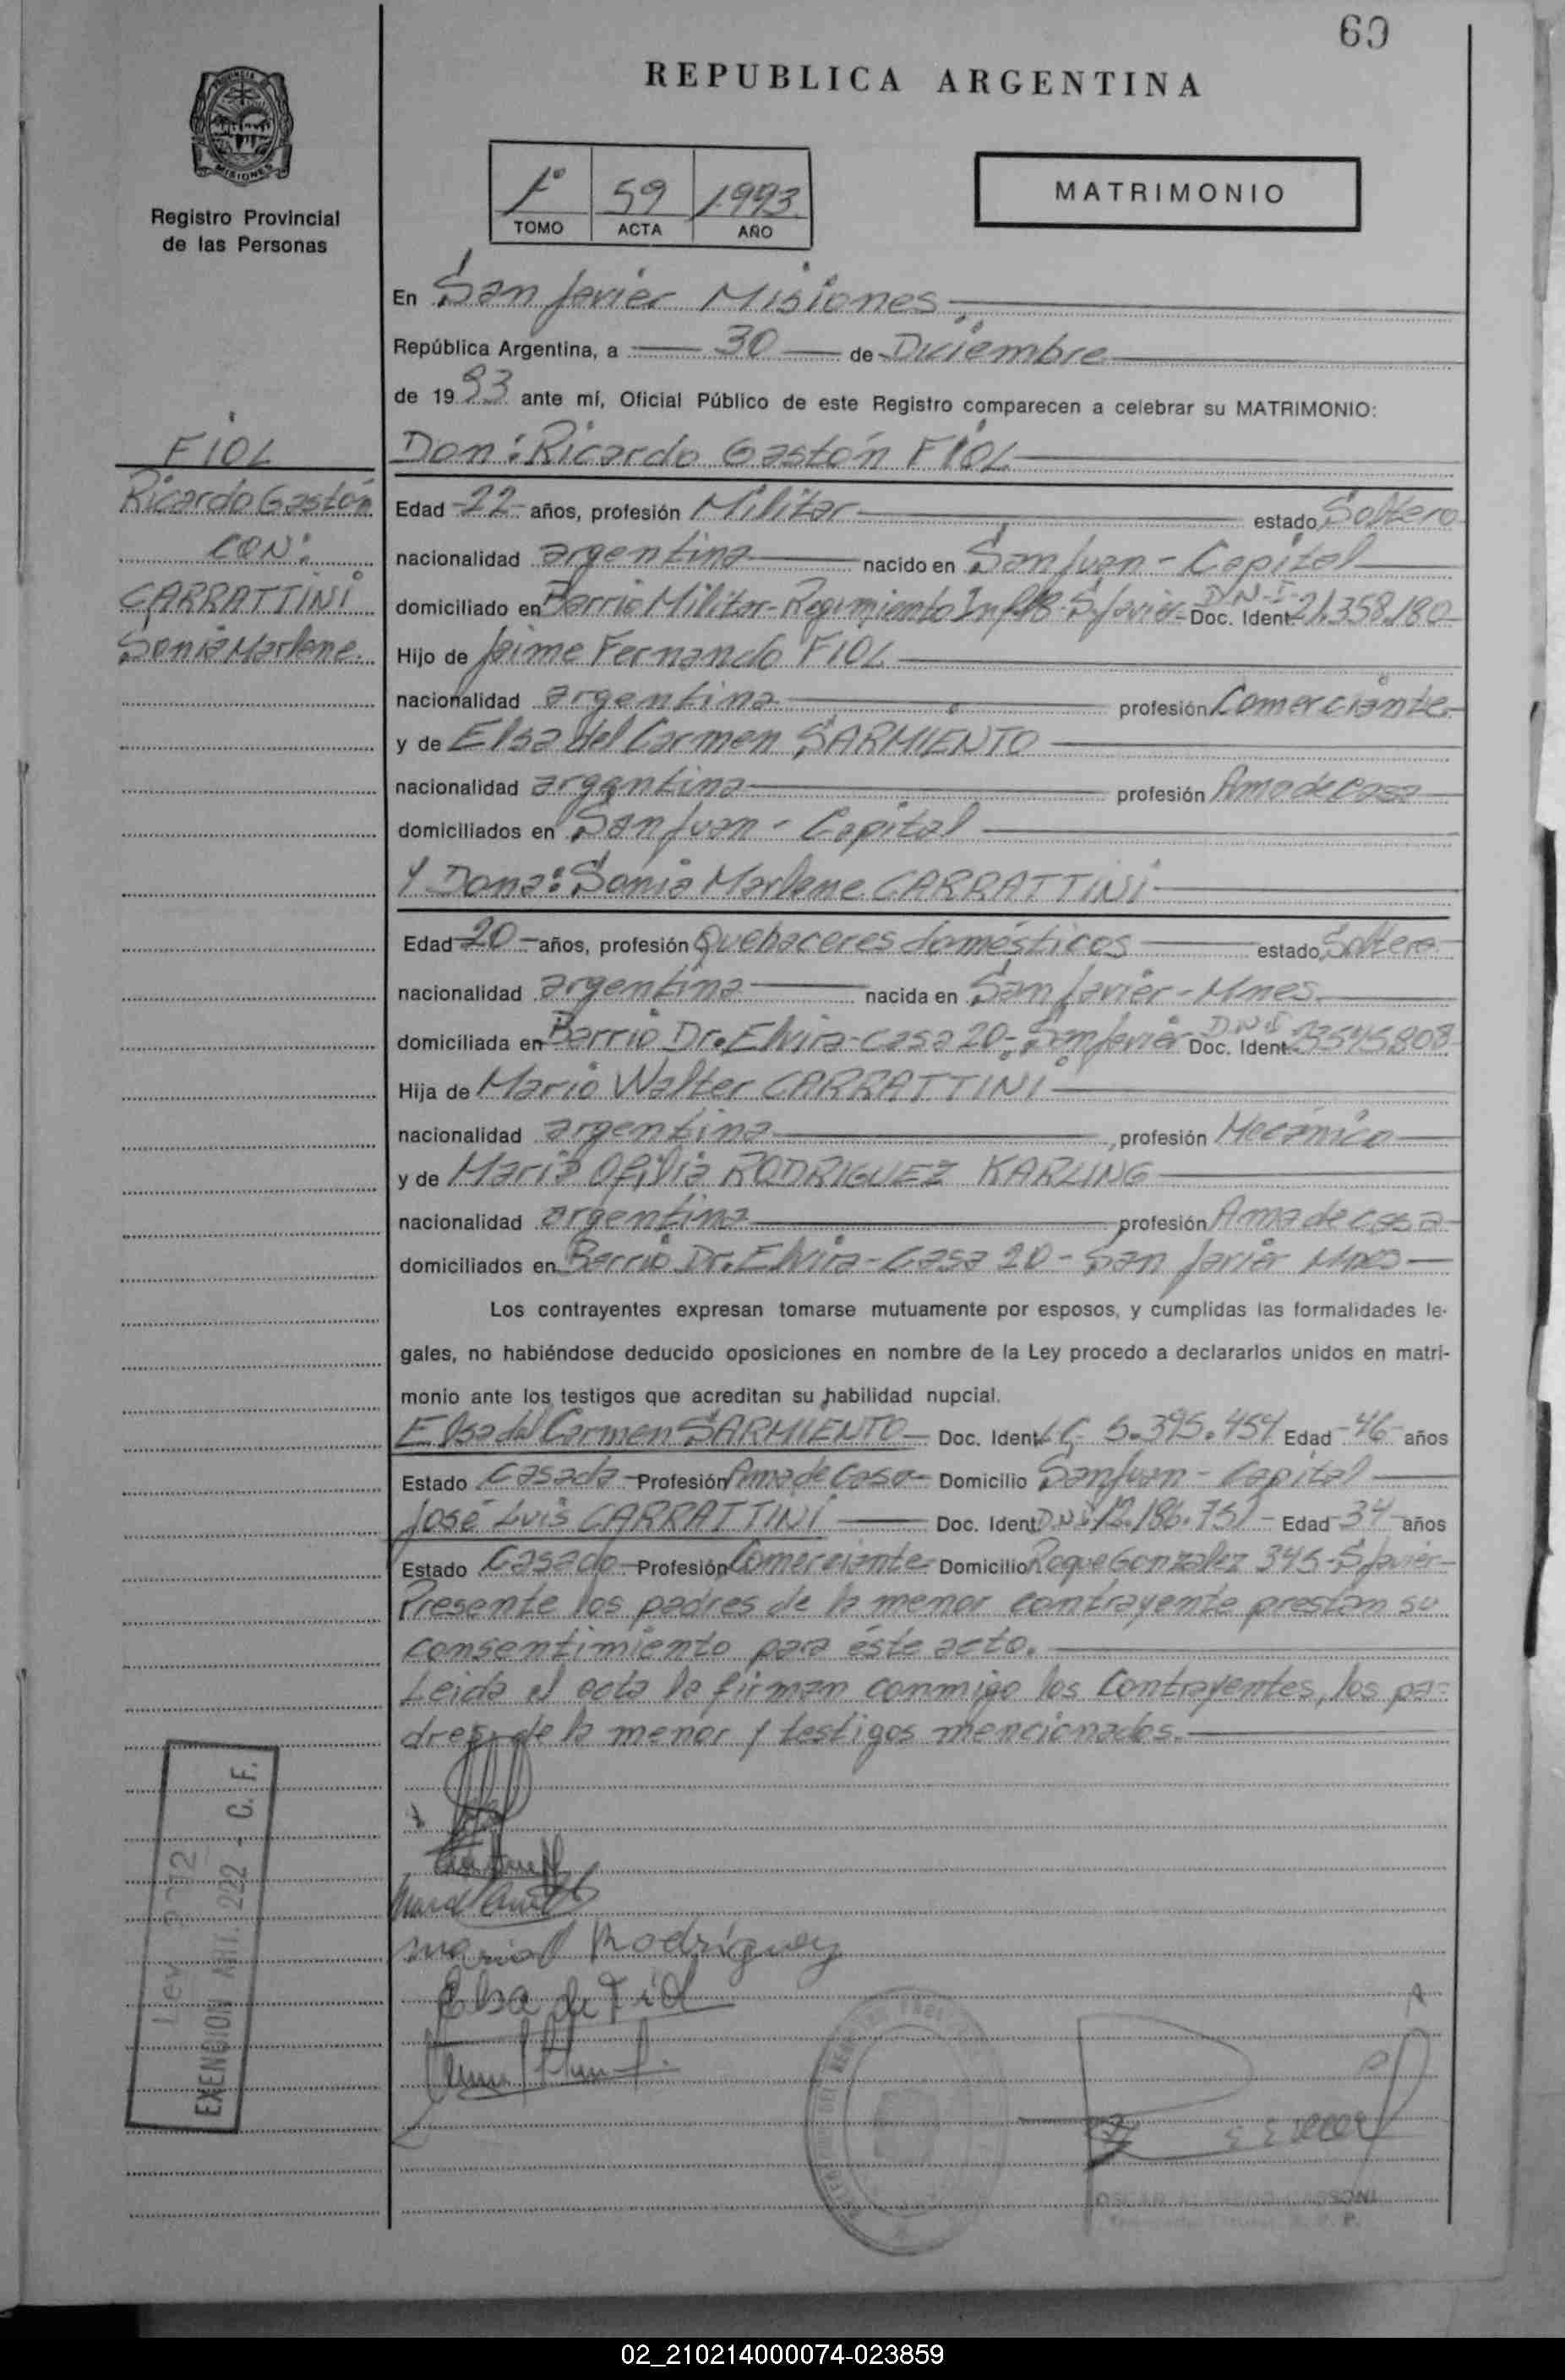 69
REPUBLICA ARGENTINA
PROVINCIA
MISIONES
Registro Provincial
de las Personas
1º 59 1993
TOMO ACTA AÑO
MATRIMONIO
En San Javier Misiones
República Argentina, a 30 de Diciembre
de 1993 ante mí, Oficial Público de este Registro comparecen a celebrar su MATRIMONIO:
FIOL
Ricardo Gastón
CON:
CARRATTINI
Sonia Marlene
Don: Ricardo Gastón FIOL
Edad 22 años, profesión Militar estado Soltero
nacionalidad argentina nacido en San Juan - Capital
domiciliado en Barrio Militar - Regimiento Inf. S. Javier - D.N.I. Doc. Ident. 21.358.180
Hijo de Jaime Fernando FIOL
nacionalidad argentina profesión Comerciante
y de Elsa del Carmen SARMIENTO
nacionalidad argentina profesión Ama de casa
domiciliados en San Juan - Capital
Y Dona: Sonia Marlene CARRATTINI
Edad 20 años, profesión Quehaceres domésticos estado Soltera
nacionalidad argentina nacida en San Javier - Mnes
domiciliada en Barrio Dr. Elvira - casa 20 - San Javier D.N.I Doc. Ident. 23545808
Hija de Mario Walter CARRATTINI
nacionalidad argentina profesión Mecánico
y de Maria Ofilia RODRIGUEZ KARLING
nacionalidad argentina profesión Ama de casa
domiciliados en Barrio Dr. Elvira - Casa 20 - San Javier Mnes
Los contrayentes expresan tomarse mutuamente por esposos, y cumplidas las formalidades le-
gales, no habiéndose deducido oposiciones en nombre de la Ley procedo a declararlos unidos en matri-
monio ante los testigos que acreditan su habilidad nupcial.
Elsa del Carmen SARMIENTO Doc. Ident. L.C. 5.395.454 Edad 46 años
Estado Casada Profesión Ama de Casa Domicilio San Juan - Capital
José Luis CARRATTINI Doc. Ident. D.N.I 12.186.751 Edad 34 años
Estado Casado Profesión Comerciante Domicilio Roque Gonzalez 345 - S. Javier
Presente los padres de la menor contrayente prestan su
consentimiento para éste acto.
Leida el acta la firman conmigo los Contrayentes, los pa-
dres de la menor y testigos mencionados.
Ley
EXENCION ART. 222 - C. F.
Rodriguez
Elsa de Fiol
02_210214000074-023859